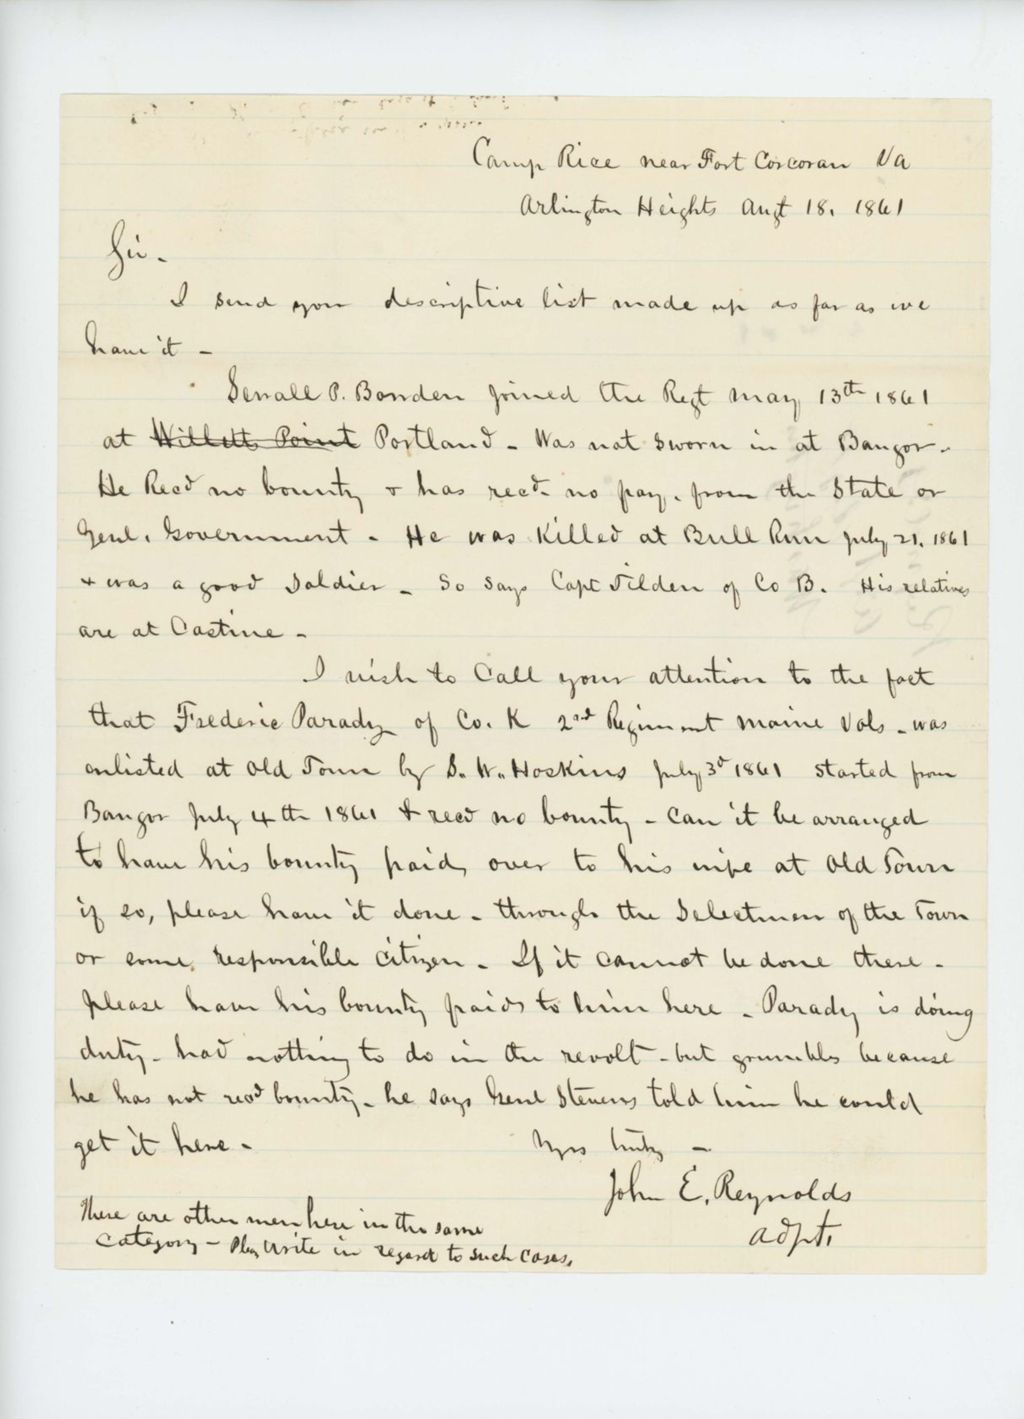 Camp Rice near Fort Corcoran Va
Arlington Heights Augt 18, 1861
Sir -
I send you descriptive list made up as far as we
have it -
Sewall P. Bowden joined the Regt May 13th 1861
at Willetts Point Portland - Was not sworn in at Bangor -
He Recd no bounty & has recd no pay, from the State or
Genl. Government - He was Killed at Bull Run July 21, 1861
& was a good Soldier - So says Capt Tilden of Co B. His relatives
are at Castine -
I wish to Call your attention to the fact
that Frederic Parady of Co. K 2nd Regiment Maine Vols - was
enlisted at Old Town by S. W. Hoskins July 3d 1861 started from
Bangor July 4th 1861 & recd no bounty - Can it be arranged
to have his bounty paid over to his wife at Old Town
if so, please have it done - through the Selectmen of the Town
or some responsible citizen - If it cannot be done there -
please have his bounty paid to him here - Parady is doing
duty - had nothing to do in the revolt - but grumbles because
he has not recd bounty - he says Genl Stevens told him he could
get it here -
Yrs truly -
John E. Reynolds
Adjt.
There are other men here in the same
Category - Pleas write in regard to such Cases.